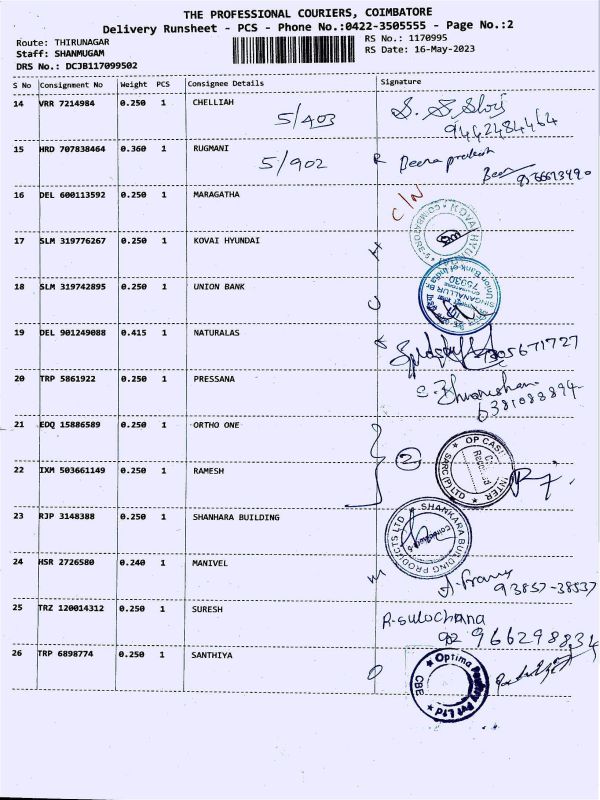 THE PROFESSIONAL COURIERS, COIMBATORE
Delivery Runsheet - PCS - Phone No.:0422-3505555 - Page No.:2
Route: THIRUNAGAR
Staff: SHANMUGAM
DRS No.: DCJB117099502
RS No.: 1170995
RS Date: 16-May-2023
S No Consignment No Weight PCS Consignee Details Signature
14 VRR 7214984 0.250 1 CHELLIAH 5/403
9442484464
15 HRD 707838464 0.360 1 RUGMANI 5/902
16 DEL 600113592 0.250 1 MARAGATHA C/N
17 SLM 319776267 0.250 1 KOVAI HYUNDAI
18 SLM 319742895 0.250 1 UNION BANK
19 DEL 901249088 0.415 1 NATURALAS
20 TRP 5861922 0.250 1 PRESSANA
21 EDQ 15886589 0.250 1 ORTHO ONE
2
22 IXM 503661149 0.250 1 RAMESH
23 RJP 3148388 0.250 1 SHANHARA BUILDING
SHANKARA BUILDING PRODUCTS LTD
24 HSR 2726580 0.240 1 MANIVEL
93857-38537
25 TRZ 120014312 0.250 1 SURESH R-sulochana
966298834
26 TRP 6898774 0.250 1 SANTHIYA
CBE